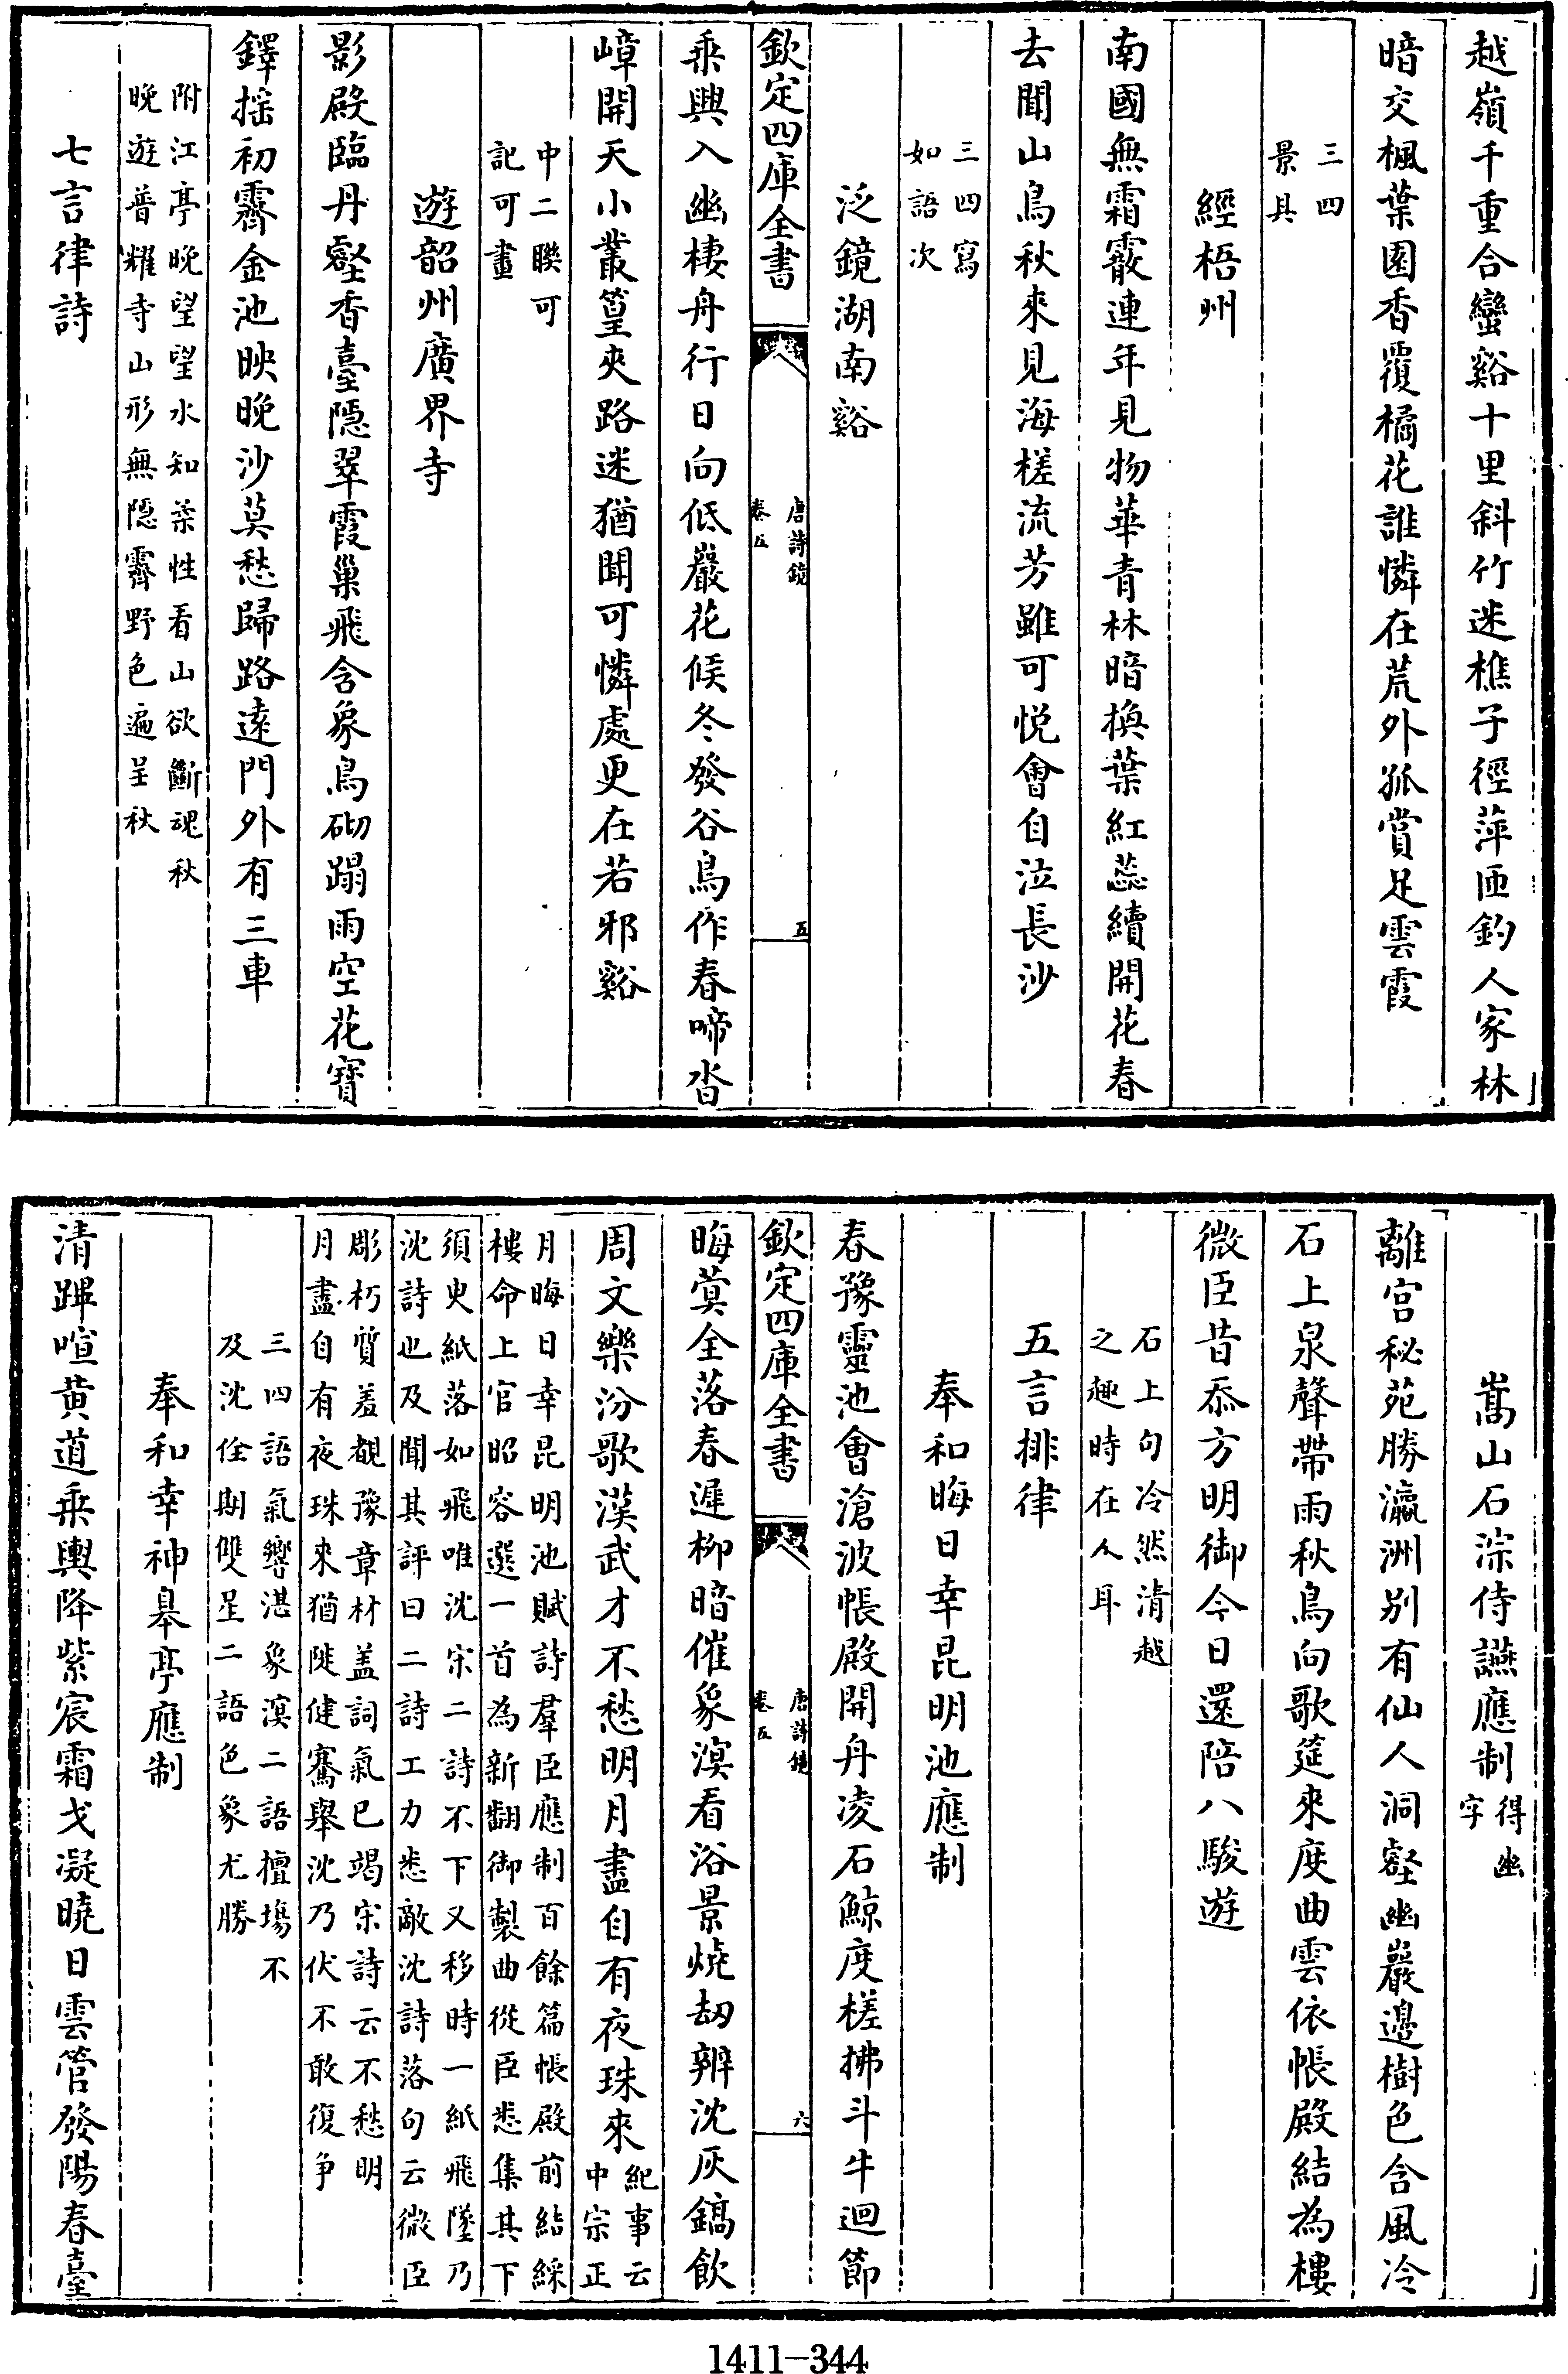 越嶺千重合蠻谿十里斜竹迷樵子徑萍匝釣人家林
暗交楓葉園香覆橘花誰憐在荒外孤賞足雲霞
三四
景具
經梧州
南國無霜霰連年見物華青林暗換葉紅蕊續開花春
去聞山鳥秋來見海槎流芳雖可悅會自泣長沙
三四寫
如語次
泛鏡湖南谿
欽定四庫全書
唐詩鏡
卷五
五
乘興入幽棲舟行日向低巖花候冬發谷鳥作春啼沓
嶂開天小叢篁夾路迷猶聞可憐處更在若邪谿
中二聯可
記可畫
遊韶州廣界寺
影殿臨丹壑香臺隱翠霞巢飛含象鳥砌蹋雨空花寶
鐸揺初霽金池映晚沙莫愁歸路遠門外有三車
附江亭晚望望水知柔性看山欲斷魂秋
晚遊普耀寺山形無隱霽野色遍呈秋
七言律詩
嵩山石淙侍讌應制
得幽
字
離宫秘苑勝瀛洲别有仙人洞壑幽巖邊樹色含風冷
石上泉聲帶雨秋鳥向歌筵來度曲雲依帳殿結為樓
微臣昔忝方明御今日還陪八駿遊
石上句冷然清越
之趣時在人耳
五言排律
奉和晦日幸昆明池應制
春豫靈池會滄波帳殿開舟凌石鯨度槎拂斗牛迴節
欽定四庫全書
唐詩鏡
卷五
六
晦蓂全落春遲柳暗催象溟看浴景燒刼辨沈灰鎬飲
周文樂汾歌漢武才不愁明月盡自有夜珠來
紀事云
中宗正
月晦日幸昆明池賦詩羣臣應制百餘篇帳殿前結綵
樓命上官昭容選一首為新翻御製曲從臣悉集其下
須臾紙落如飛唯沈宋二詩不下又移時一紙飛墜乃
沈詩也及聞其評曰二詩工力悉敵沈詩落句云微臣
彫朽質羞覩豫章材盖詞氣已竭宋詩云不愁明
月盡自有夜珠來猶陡健騫舉沈乃伏不敢復争
三四語氣響湛象溟二語擅塲不
及沈佺期雙星二語色象尤勝
奉和幸神臯亭應制
清蹕喧黄道乘輿降紫宸霜戈凝曉日雲管發陽春臺
1411-344